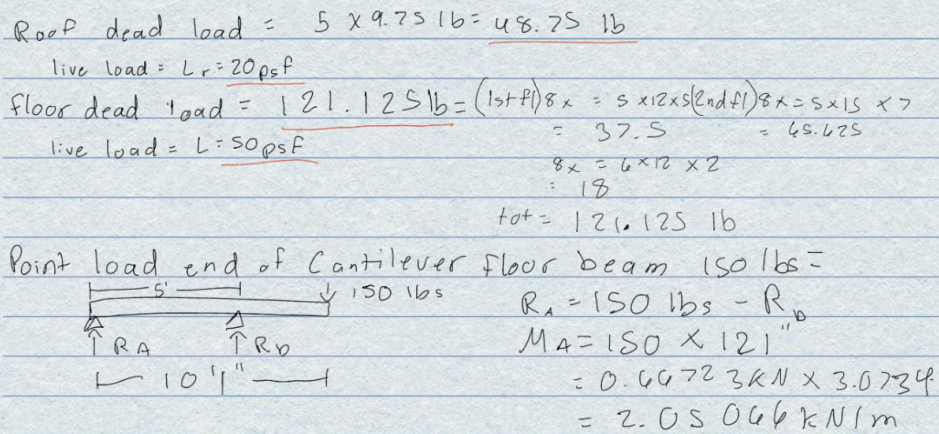 Roof dead load = 5 x 9.75 lb = 48.75 lb
live load = Lr = 20 psf
floor dead load = 121.125 lb = (1st fl) 8x = 5x12x5 (2nd fl) 8x = 5x15 x7
= 37.5 = 65.625
live load = L = 50 psf
8x = 6x12 x2
= 18
tot = 121.125 lb
Point load end of Cantilever floor beam 150 lbs =
5' 150 lbs RA = 150 lbs - Rb
RA Rb MA = 150 x 121"
10'1" = 0.66723kN x 3.0734
= 2.05066kN/m